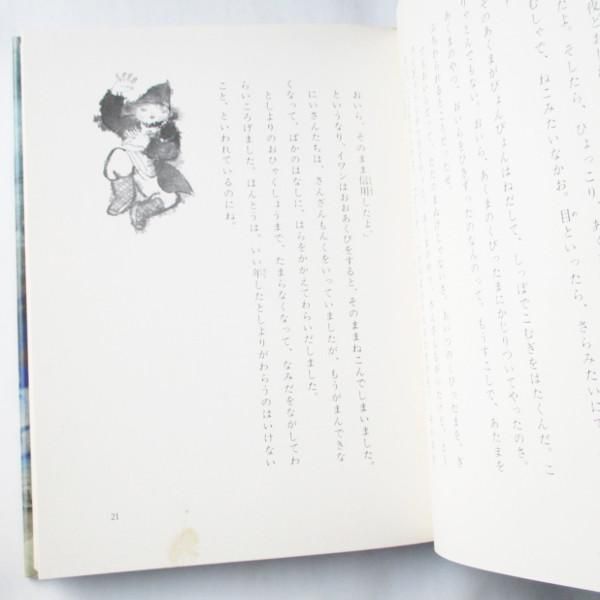 夜どお
むしゃで、ねこみたいなかお。目といったら、さらみたいにて
だよ。そしたら、ひょっこり、あく
そのあくまがぴょんぴょんはねだして、しっぽでこむぎをはたくんだ。こ
りゃとんでもない。おいら、あくまのくびったまにかじりついてやったのさ。
おいら、そのまま信用したよ。」
というなり、イワンはおおあくびをすると、そのままねこんでしまいました。
にいさんたちは、さんざんもんくをいっていましたが、もうがまんできな
くなって、ばかのはなしに、はらをかかえてわらいだしました。
としよりのおひゃくしょうまで、たまらなくなって、なみだをながしてわ
らいころげました。ほんとうは、いい年したとしよりがわらうのはいけない
こと、といわれているのにね。
21